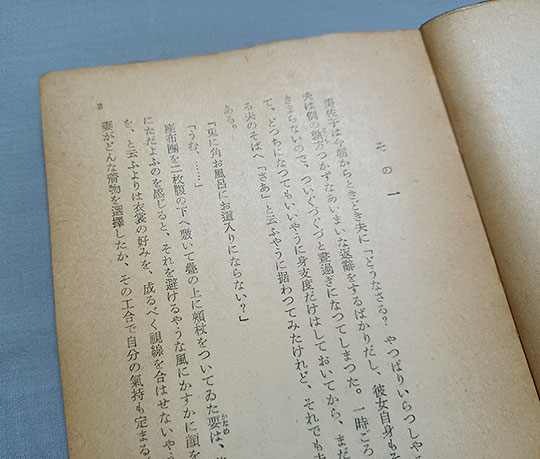 その一
美佐子は今朝からときどき夫に「どうなさる? やつぱりいらつしやる
夫は例の孰方つかずなあいまいな返辭をするばかりだし、彼女自身もそ
きまらないので、ついぐづぐづと晝過ぎになつてしまつた。一時ころ
て、どつちになつてもいいやうに身支度だけはしておいてから、まだ
る夫のそばへ「さあ」と云ふやうに据わつてみたけれど、それでも夫
ある。
「兎に角お風呂にお這入りにならない?」
「うむ、……」
座布團を二枚腹の下へ敷いて疊の上に頰杖をついてゐた要は、
かなめ
にただよふのを感じると、それを避けるやうな風にかすかに顏を
を、と云ふよりは衣裳の好みを、成るべく視線を合はせないや
妻がどんな着物を選擇したか、その工合で自分の氣持も定まる
3